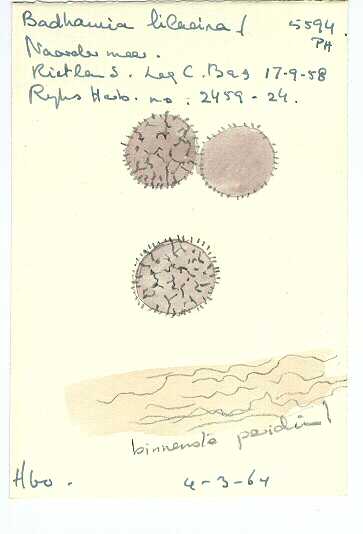 Badhamia lilacina! 5594.
PH
Naardermeer.
Rietlan S. Leg C. Bas 17-9-58
Ryks Herb. no: 2459-24.
binnenste peridium!
Hbo. 4-3-64